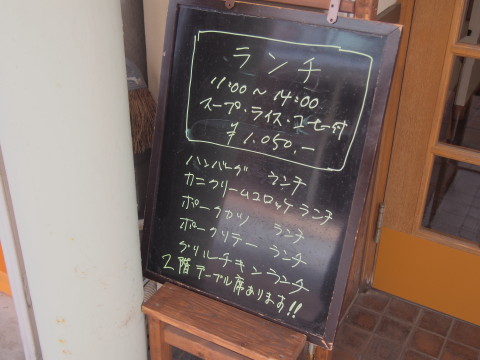 ランチ
11:00〜14:00
スープ・ライス・コーヒー付
¥1.050.-
ハンバーグ ランチ
カニクリームコロッケランチ
ポークカツ ランチ
ポークソテー ランチ
グリルチキンランチ
2階テーブル席あります!!